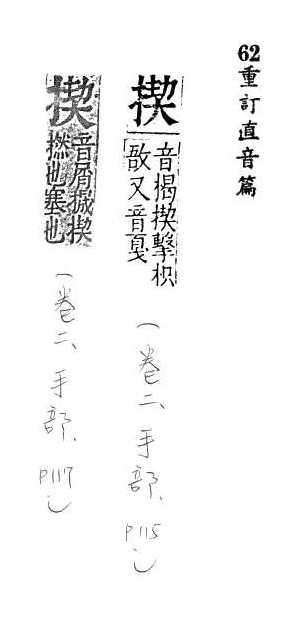 62重訂直音篇
揳
音揭揳擊枳
敔又音戛
(卷二、手部、P115)
揳
音屑搣揳
撚也塞也
(卷二、手部、P117)